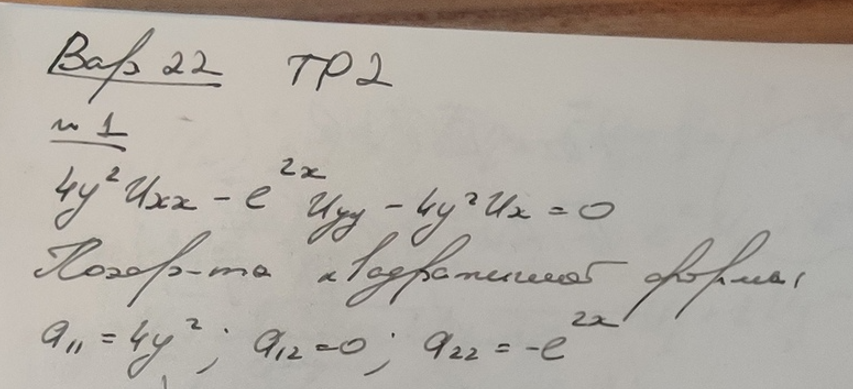 Вар 22 ТР2
№ 1
4y² Uxx - e^{2x} Uyy - 4y² Ux = 0
квадратичной формы
a₁₁ = 4y²; a₁₂ = 0; a₂₂ = -e^{2x}